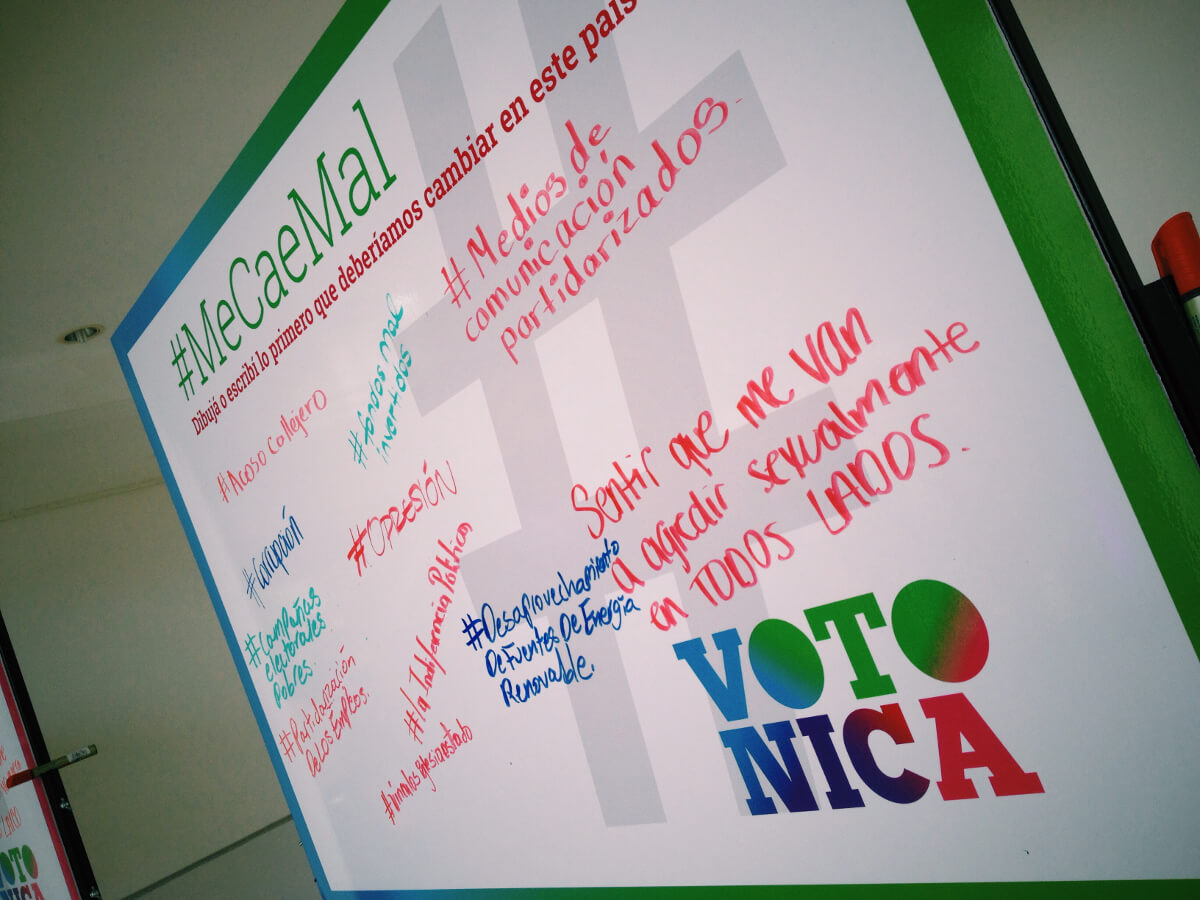 #MeCaeMal
Dibujá o escribí lo primero que deberíamos cambiar en este país
#Medios de
comunicación
partidarizados.
#fondos mal
invertidos
#Acoso Callejero
Sentir que me van
a agredir sexualmente
en TODOS LADOS.
#OPRESIÓN
#Corrupción
#Campañas
electorales
Pobres.
#la Indiferencia Política
#Desaprovechamiento
De Fuentes De Energía
Renovable.
#Partidarización
De Los Empleos.
VOTO
NICA
VOTO
NICA